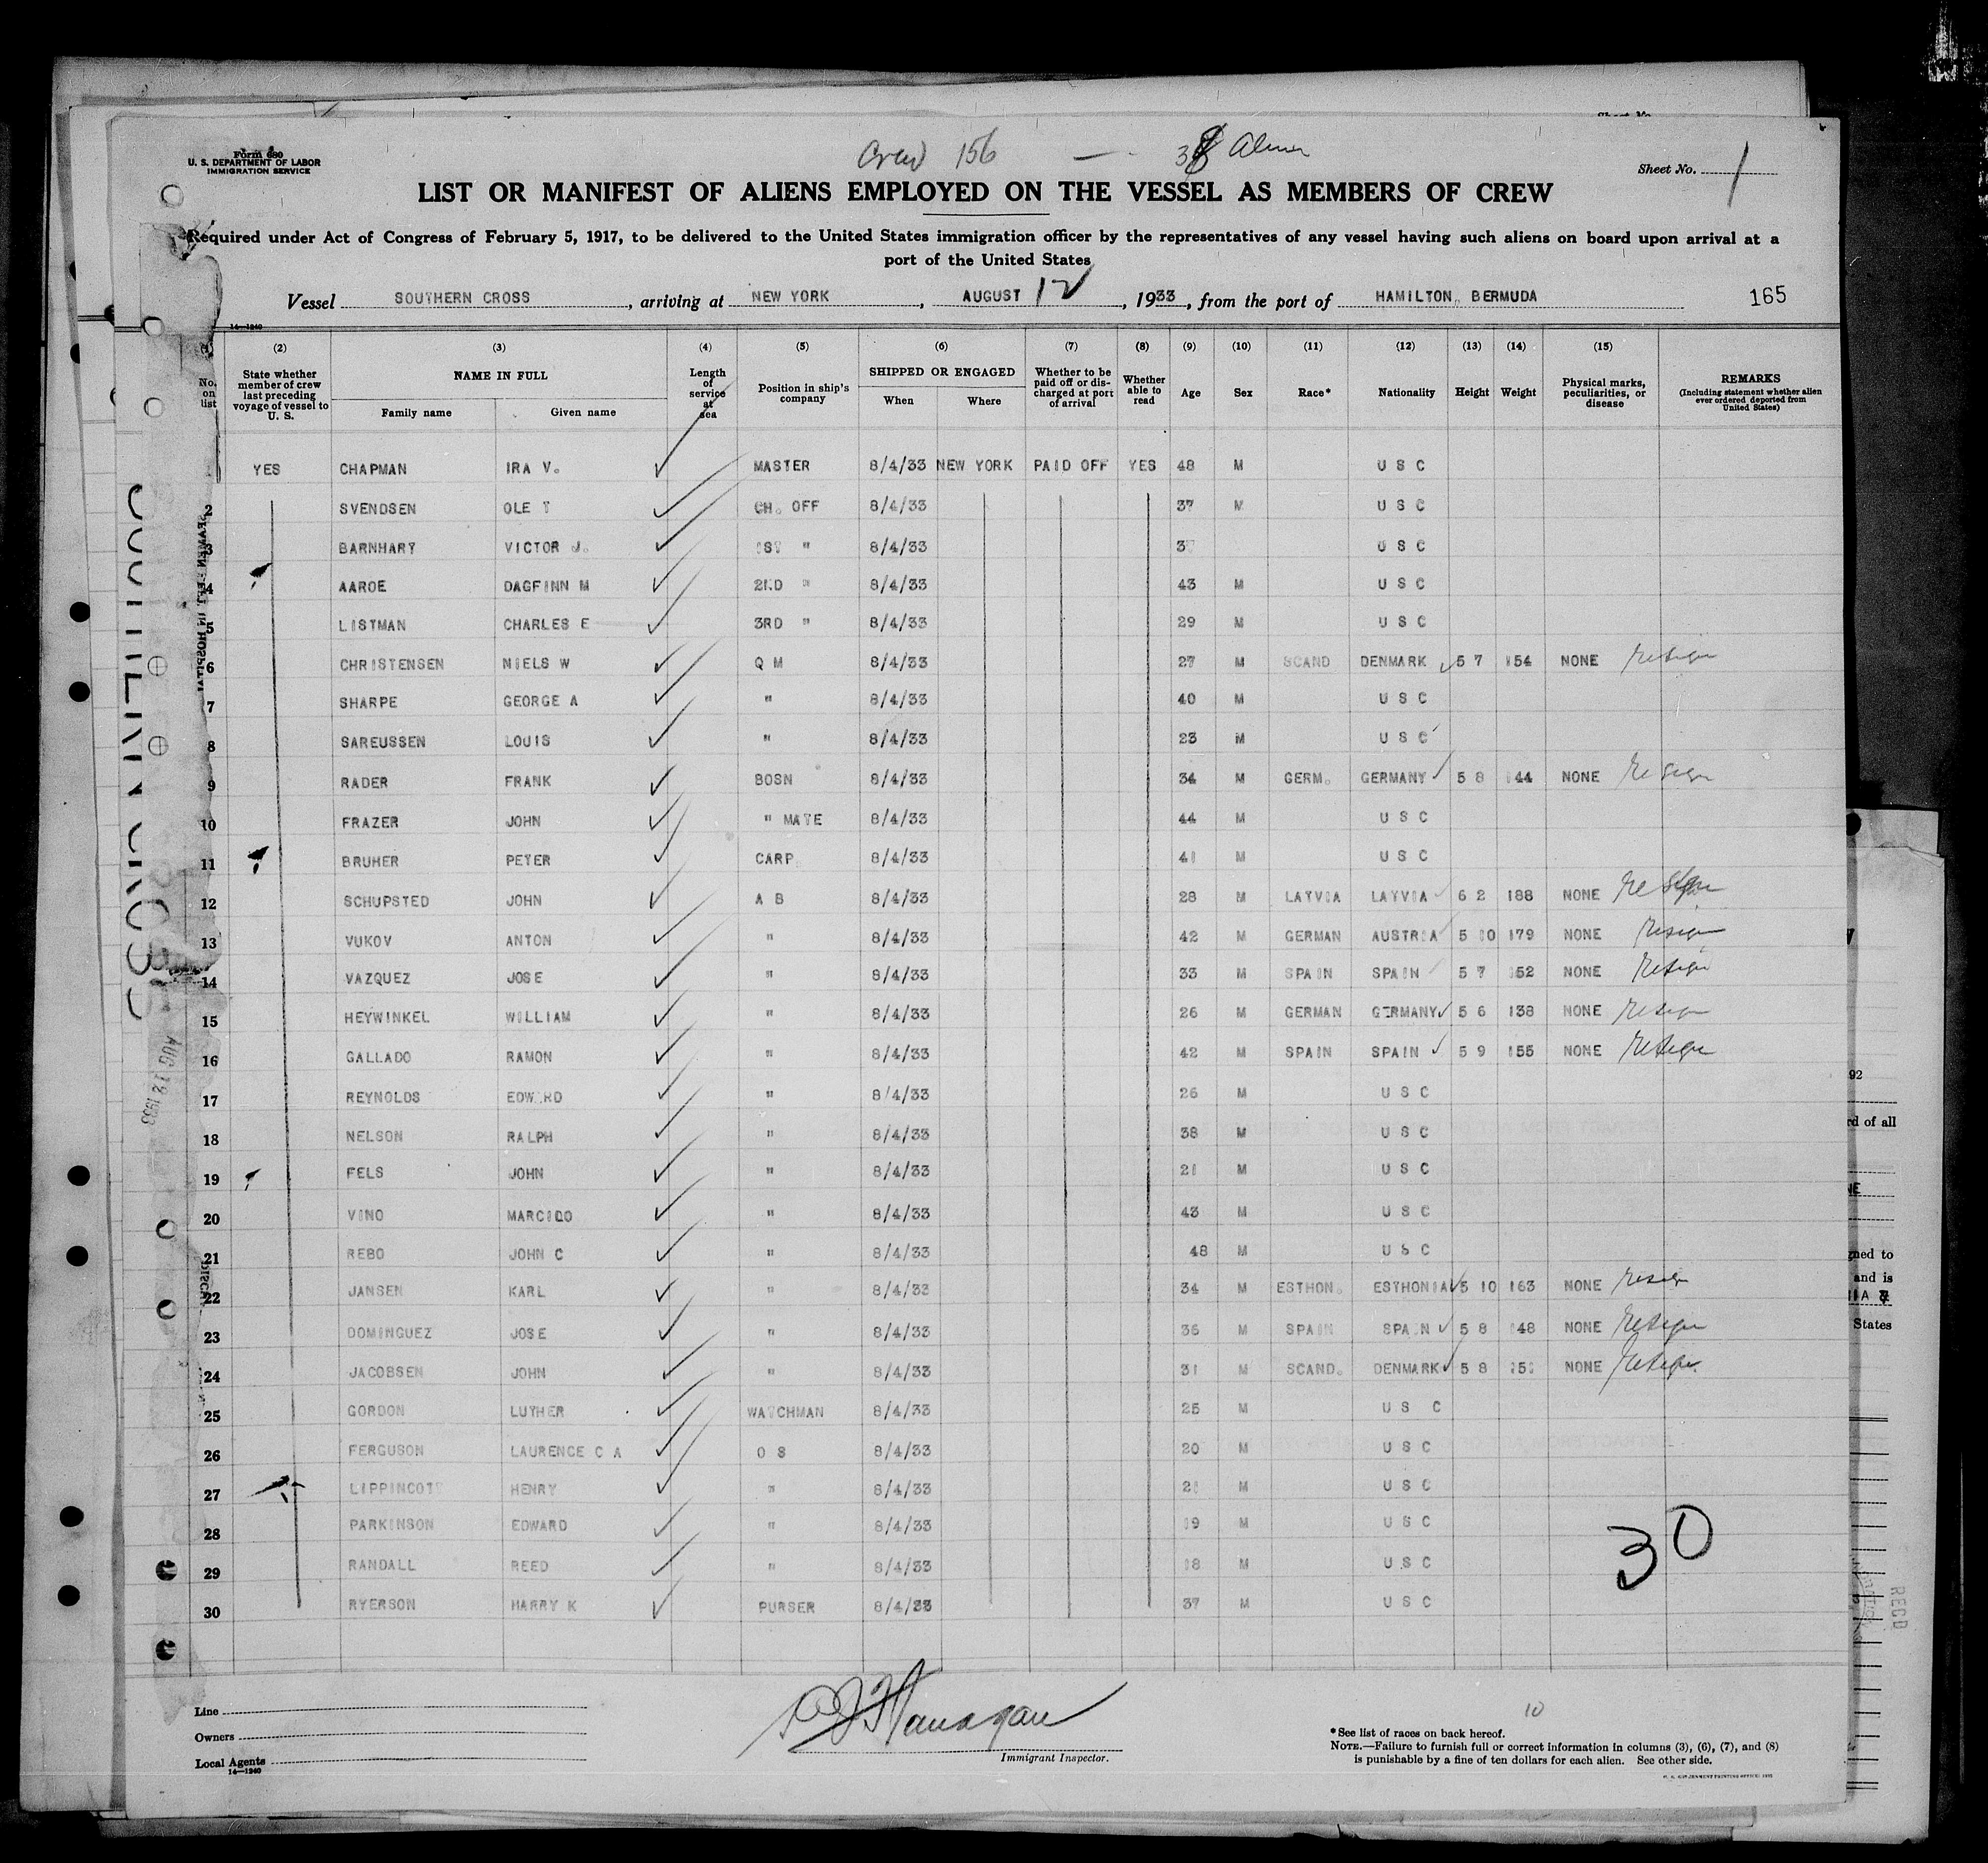 Form 680
U. S. DEPARTMENT OF LABOR
IMMIGRATION SERVICE
Crew 156 — 38 Aliens
Sheet No. 1
LIST OR MANIFEST OF ALIENS EMPLOYED ON THE VESSEL AS MEMBERS OF CREW
Required under Act of Congress of February 5, 1917, to be delivered to the United States immigration officer by the representatives of any vessel having such aliens on board upon arrival at a
port of the United States
Vessel SOUTHERN CROSS, arriving at NEW YORK, AUGUST 12, 1933, from the port of HAMILTON. BERMUDA 165
14—1240
(1) (2) (3) (4) (5) (6) (7) (8) (9) (10) (11) (12) (13) (14) (15)
No. on list State whether member of crew last preceding voyage of vessel to U. S. NAME IN FULL Family name Given name Length of service at sea Position in ship's company SHIPPED OR ENGAGED When Where Whether to be paid off or discharged at port of arrival Whether able to read Age Sex Race* Nationality Height Weight Physical marks, peculiarities, or disease REMARKS (Including statement whether alien ever ordered deported from United States)
YES CHAPMAN IRA V. MASTER 8/4/33 NEW YORK PAID OFF YES 48 M U S C
2 SVENDSEN OLE T CH. OFF 8/4/33 37 M U S C
3 BARNHART VICTOR J. 1ST " 8/4/33 U S C
4 AAROE DAGFINN M 2ND " 8/4/33 43 M U S C
5 LISTMAN CHARLES E 3RD " 8/4/33 29 M U S C
6 CHRISTENSEN NIELS W Q M 8/4/33 27 M SCAND DENMARK 5 7 154 NONE resign
7 SHARPE GEORGE A " 8/4/33 40 M U S C
8 SAREUSSEN LOUIS " 8/4/33 23 M U S C
9 RADER FRANK BOSN 8/4/33 34 M GERM. GERMANY 5 8 144 NONE resign
10 FRAZER JOHN " MATE 8/4/33 44 M U S C
11 BRUHER PETER CARP. 8/4/33 41 M U S C
12 SCHUPSTED JOHN A B 8/4/33 28 M LATVIA LATVIA 6 2 188 NONE resign
13 VUKOV ANTON " 8/4/33 42 M GERMAN AUSTRIA 5 10 179 NONE resign
14 VAZQUEZ JOSE " 8/4/33 33 M SPAIN SPAIN 5 7 152 NONE resign
15 HEYWINKEL WILLIAM " 8/4/33 26 M GERMAN GERMANY 5 6 138 NONE resign
16 GALLADO RAMON " 8/4/33 42 M SPAIN SPAIN 5 9 155 NONE resign
17 REYNOLDS EDWARD " 8/4/33 26 M U S C
18 NELSON RALPH " 8/4/33 38 M U S C
19 FELS JOHN " 8/4/33 21 M U S C
20 VINO MARCIDO " 8/4/33 43 M U S C
21 REBO JOHN C " 8/4/33 48 M U S C
22 JANSEN KARL " 8/4/33 34 M ESTHON. ESTHONIA 5 10 163 NONE resign
23 DOMINGUEZ JOSE " 8/4/33 36 M SPAIN SPAIN 5 8 148 NONE resign
24 JACOBSEN JOHN " 8/4/33 31 M SCAND. DENMARK 5 8 151 NONE resign
25 GORDON LUTHER WATCHMAN 8/4/33 25 M U S C
26 FERGUSON LAURENCE C A O S 8/4/33 20 M U S C
27 LIPPINCOTT HENRY " 8/4/33 21 M U S C
28 PARKINSON EDWARD " 8/4/33 19 M U S C
29 RANDALL REED " 8/4/33 18 M U S C
30 RYERSON HARRY K PURSER 8/4/33 37 M U S C
30
SOUTHERN CROSS
AUG 12 1933
Line
Owners
Local Agents
14—1240
Flanagan
Immigrant Inspector.
10
*See list of races on back hereof.
NOTE.—Failure to furnish full or correct information in columns (3), (6), (7), and (8)
is punishable by a fine of ten dollars for each alien. See other side.
92
rd of all
gned to
and is
States
RECD